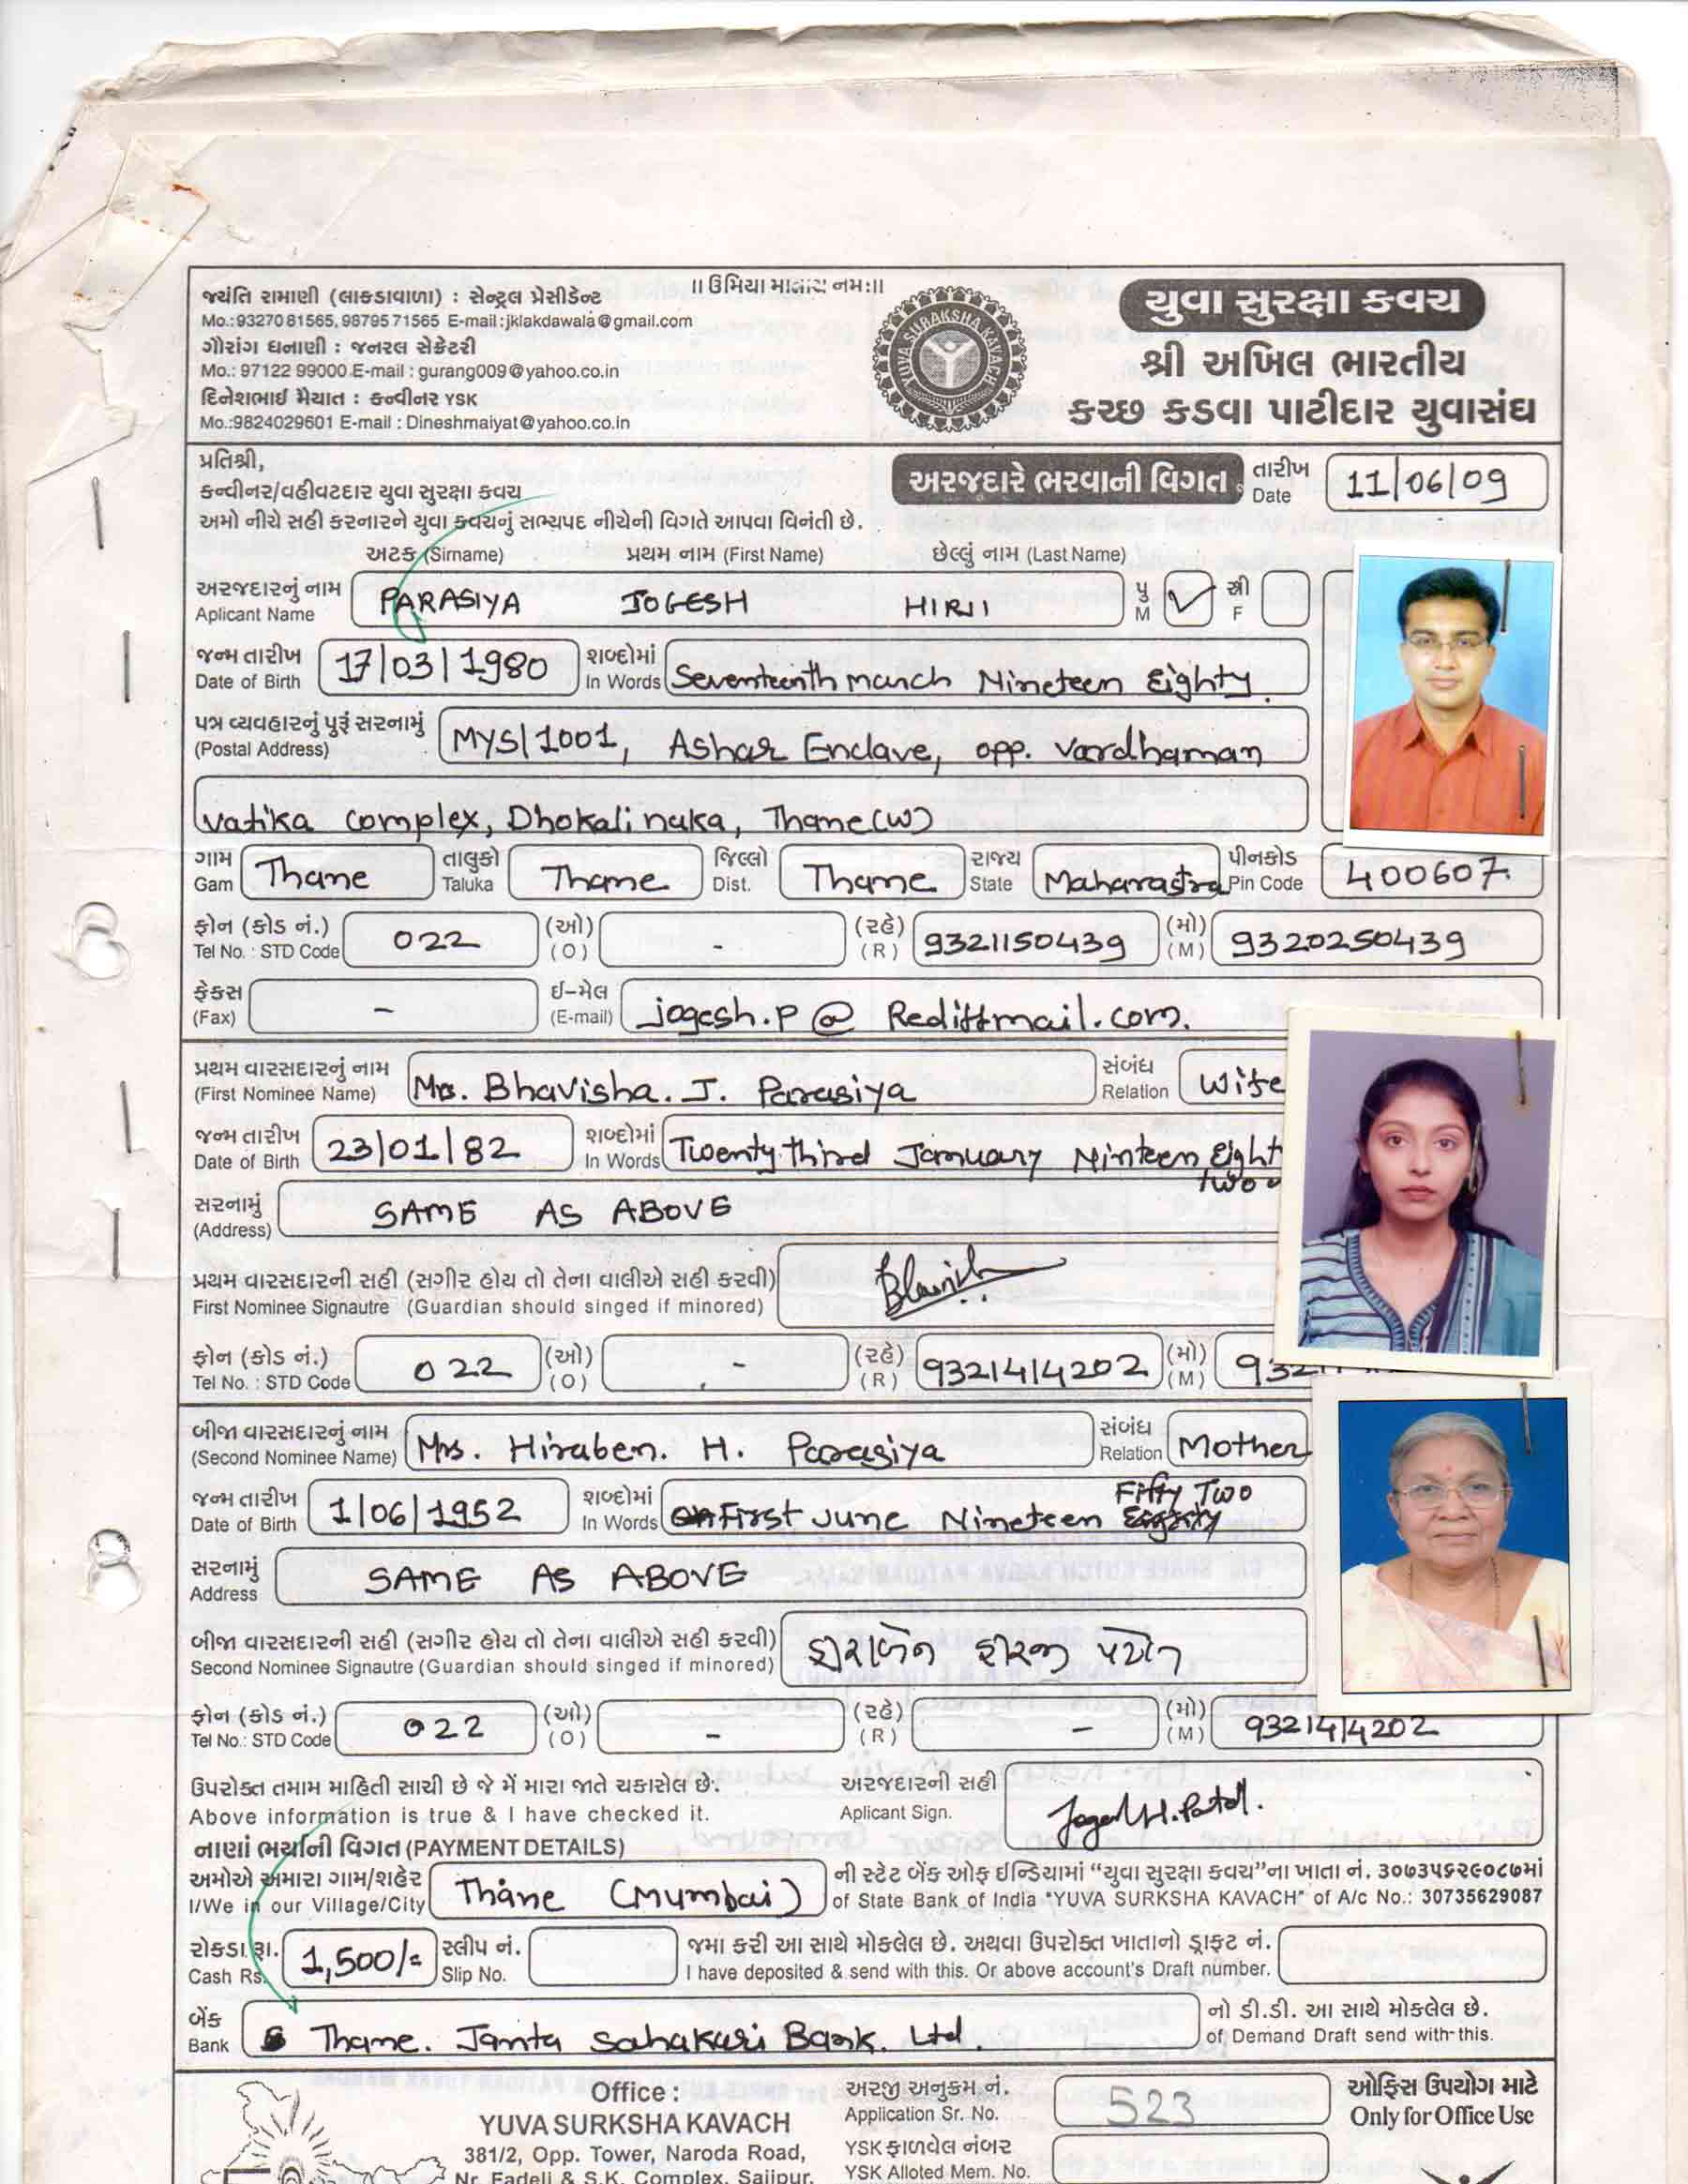 ॥ ઉમિયા માતાય નમઃ॥
જયંતિ રામાણી (લાકડાવાળા) : સેન્ટ્રલ પ્રેસીડેન્ટ
Mo.:9327081565,9879571565 E-mail:jklakdawala@gmail.com
ગૌરાંગ ધનાણી : જનરલ સેક્રેટરી
Mo.: 97122 99000 E-mail : gurang009@yahoo.co.in
દિનેશભાઈ મૈયાત : કન્વીનર YSK
Mo.:9824029601 E-mail : Dineshmaiyat@yahoo.co.in
YUVA SURAKSHA KAVACH
યુવા સુરક્ષા કવચ
શ્રી અખિલ ભારતીય
કચ્છ કડવા પાટીદાર યુવાસંઘ
પ્રતિશ્રી,
કન્વીનર/વહીવટદાર યુવા સુરક્ષા કવચ
અમો નીચે સહી કરનારને યુવા કવચનું સભ્યપદ નીચેની વિગતે આપવા વિનંતી છે.
અરજદારે ભરવાની વિગત તારીખ Date 11/06/09
અટક (Sirname) પ્રથમ નામ (First Name) છેલ્લું નામ (Last Name)
અરજદારનું નામ Aplicant Name PARASIYA JOGESH HIRJI પુ M ✓ સ્ત્રી F
જન્મ તારીખ Date of Birth 17/03/1980 શબ્દોમાં In Words Seventeenth march Nineteen Eighty.
પત્ર વ્યવહારનું પુરૂં સરનામું (Postal Address) MYS/1001, Ashar Enclave, opp. Vardhaman
vatika complex, Dhokali naka, Thane(W)
ગામ Gam Thane તાલુકો Taluka Thane જિલ્લો Dist. Thane રાજ્ય State Maharastra પીનકોડ Pin Code 400607.
ફોન (કોડ નં.) Tel No. : STD Code 022 (ઓ) (O) - (રહે) (R) 9321150439 (મો) (M) 9320250439
ફેક્સ (Fax) - ઈ-મેલ (E-mail) jogesh.p @ Rediffmail.com.
પ્રથમ વારસદારનું નામ (First Nominee Name) Mrs. Bhavisha. J. Parasiya સંબંધ Relation Wife
જન્મ તારીખ Date of Birth 23/01/82 શબ્દોમાં In Words Twenty third January Ninteen Eight
two
સરનામું (Address) SAME AS ABOVE
પ્રથમ વારસદારની સહી (સગીર હોય તો તેના વાલીએ સહી કરવી)
First Nominee Signautre (Guardian should singed if minored)
ફોન (કોડ નં.) Tel No. : STD Code 022 (ઓ) (O) - (રહે) (R) 9321414202 (મો) (M) 932
બીજા વારસદારનું નામ (Second Nominee Name) Mrs. Hiraben. H. Parasiya સંબંધ Relation Mother
જન્મ તારીખ Date of Birth 1/06/1952 શબ્દોમાં In Words First June Nineteen Fifty Two
સરનામું Address SAME AS ABOVE
બીજા વારસદારની સહી (સગીર હોય તો તેના વાલીએ સહી કરવી)
Second Nominee Signautre (Guardian should singed if minored) હીરાબેન હીરજી પટેલ
ફોન (કોડ નં.) Tel No.: STD Code 022 (ઓ) (O) - (રહે) (R) - (મો) (M) 9321414202
ઉપરોક્ત તમામ માહિતી સાચી છે જે મેં મારા જાતે ચકાસેલ છે.
Above information is true & I have checked it.
અરજદારની સહી Aplicant Sign. Jogesh H. Patel.
નાણાં ભર્યાની વિગત (PAYMENT DETAILS)
અમોએ અમારા ગામ/શહેર I/We in our Village/City Thane (Mumbai)
ની સ્ટેટ બેંક ઓફ ઈન્ડિયામાં “યુવા સુરક્ષા કવચ”ના ખાતા નં. ૩૦૭૩૫૬૨૯૦૮૭માં
of State Bank of India "YUVA SURKSHA KAVACH" of A/c No.: 30735629087
રોકડા રૂા. Cash Rs. 1,500/= સ્લીપ નં. Slip No.
જમા કરી આ સાથે મોકલેલ છે. અથવા ઉપરોક્ત ખાતાનો ડ્રાફ્ટ નં.
I have deposited & send with this. Or above account's Draft number.
બેંક Bank Thane. Janta Sahakari Bank. Ltd.
નો ડી.ડી. આ સાથે મોકલેલ છે.
of Demand Draft send with this.
Office :
YUVA SURKSHA KAVACH
381/2, Opp. Tower, Naroda Road,
Nr. Fadeli & S.K. Complex, Saijpur,
અરજી અનુક્રમ નં. Application Sr. No. 523
YSK ફાળવેલ નંબર
YSK Alloted Mem. No.
ઓફિસ ઉપયોગ માટે
Only for Office Use